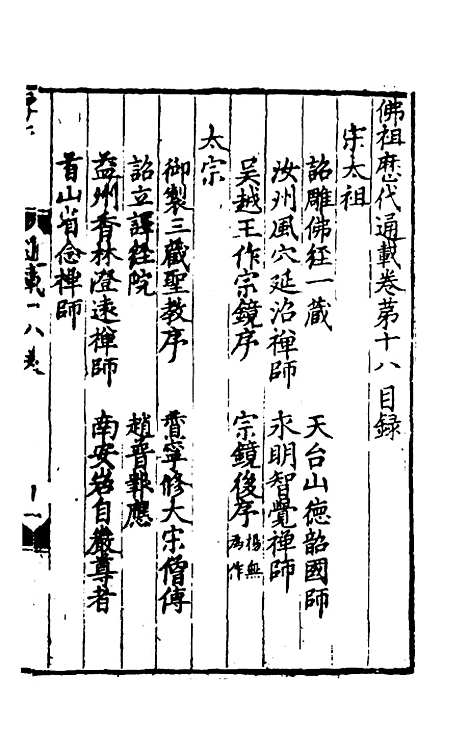 佛祖歷代通載卷第十八目録
宋太祖
詔雕佛經一藏　天台山德韶國師
汝州風穴延沼禪師　永明智覺禪師
吳越王作宗鏡序　宗鏡後序楊無為作
太宗
御製三藏聖教序　賛寧修大宋僧傳
詔立譯經院　趙普報應
益州香林澄遠禪師　南安岩自嚴尊者
首山省念禪師
通載十八卷